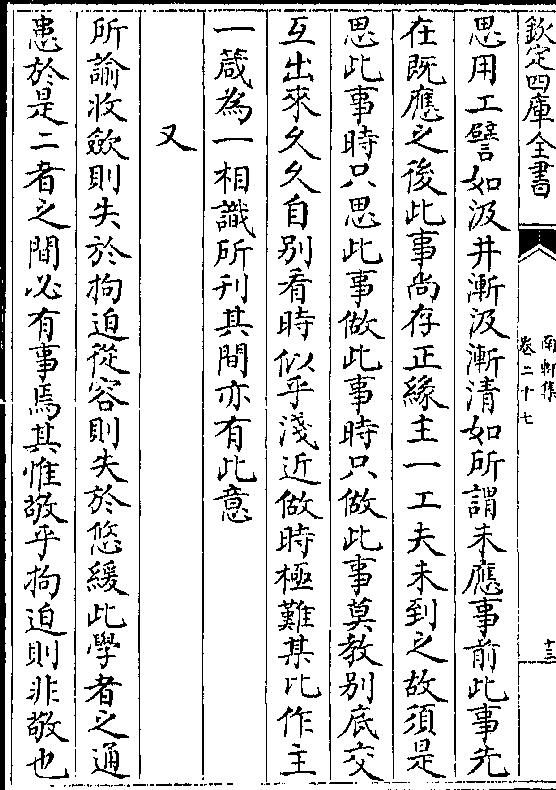 欽定四庫全書
南軒集
卷二十七
十三
思用工譬如汲井漸汲漸清如所謂未應事前此事先
在既應之後此事尚存正緣主一工夫未到之故須是
思此事時只思此事做此事時只做此事莫教别底交
互出來久久自别看時似乎淺近做時極難某比作主
一箴為一相識所刊其間亦有此意
又
所諭收斂則失於拘迫從容則失於悠緩此學者之通
患於是二者之間必有事焉其惟敬乎拘迫則非敬也